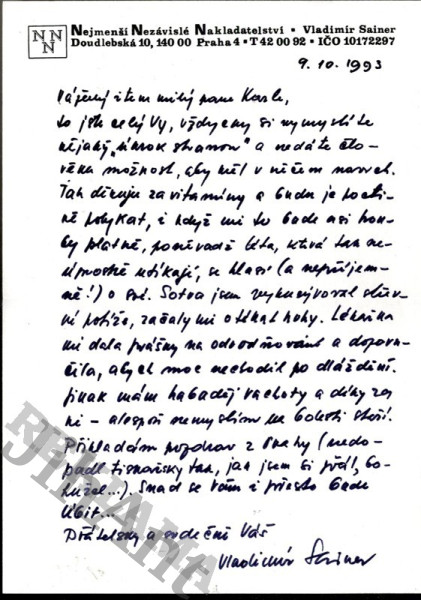 NNN
Nejmenší Nezávislé Nakladatelství • Vladimír Sainer
Doudlebská 10, 140 00 Praha 4 • T 42 00 92 • IČO 10172297
9. 10. 1993
Vážený i jen milý pane Karle,
to jste celý Vy, vždycky si vymyslíte
nějaký „úkrok stranou" a nedáte člo-
věku možnost, aby měl v něčem navrch.
Tak děkuju za vitamíny a budu je pocti-
vě polykat, i když mi to bude asi hou-
by platné, poněvadž léta, která tak ne-
úprosně utíkají, se hlásí (a nepříjem-
ně!) o své. Sotva jsem
potíže, začaly mi otékat nohy. Lékařka
mi dala prášky na odvodňování a doporu-
čila, abych moc nechodil po dláždění.
Jinak mám habaděj a díky za
ni – alespoň nemyslím na bolesti stáří.
Přikládám pozdrav z Prahy (nedo-
padl tiskařsky tak, jak jsem si přál, bo-
hužel...). Snad se Vám i přesto bude
líbit...
Přátelsky a srdečně Váš
Vladimír Sainer